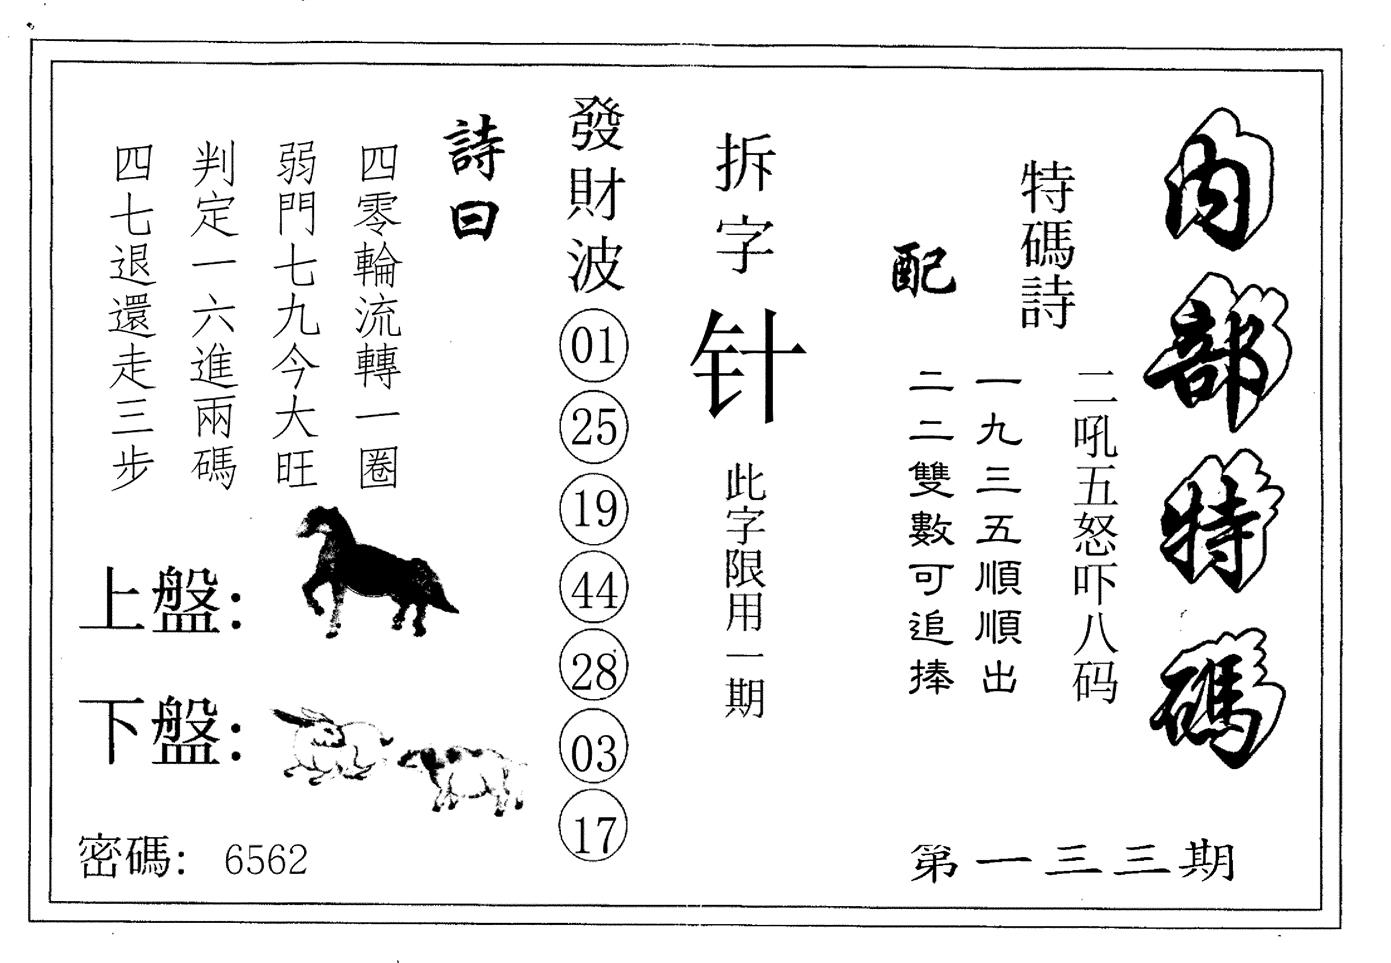 内部特碼
特碼詩
二吼五怒吓八码
配
一九三五順順出
二二雙數可追捧
第一三三期
拆字
针
此字限用一期
發財波
01
25
19
44
28
03
17
詩曰
四零輪流轉一圈
弱門七九今大旺
判定一六進兩碼
四七退還走三步
上盤:
下盤:
密碼: 6562